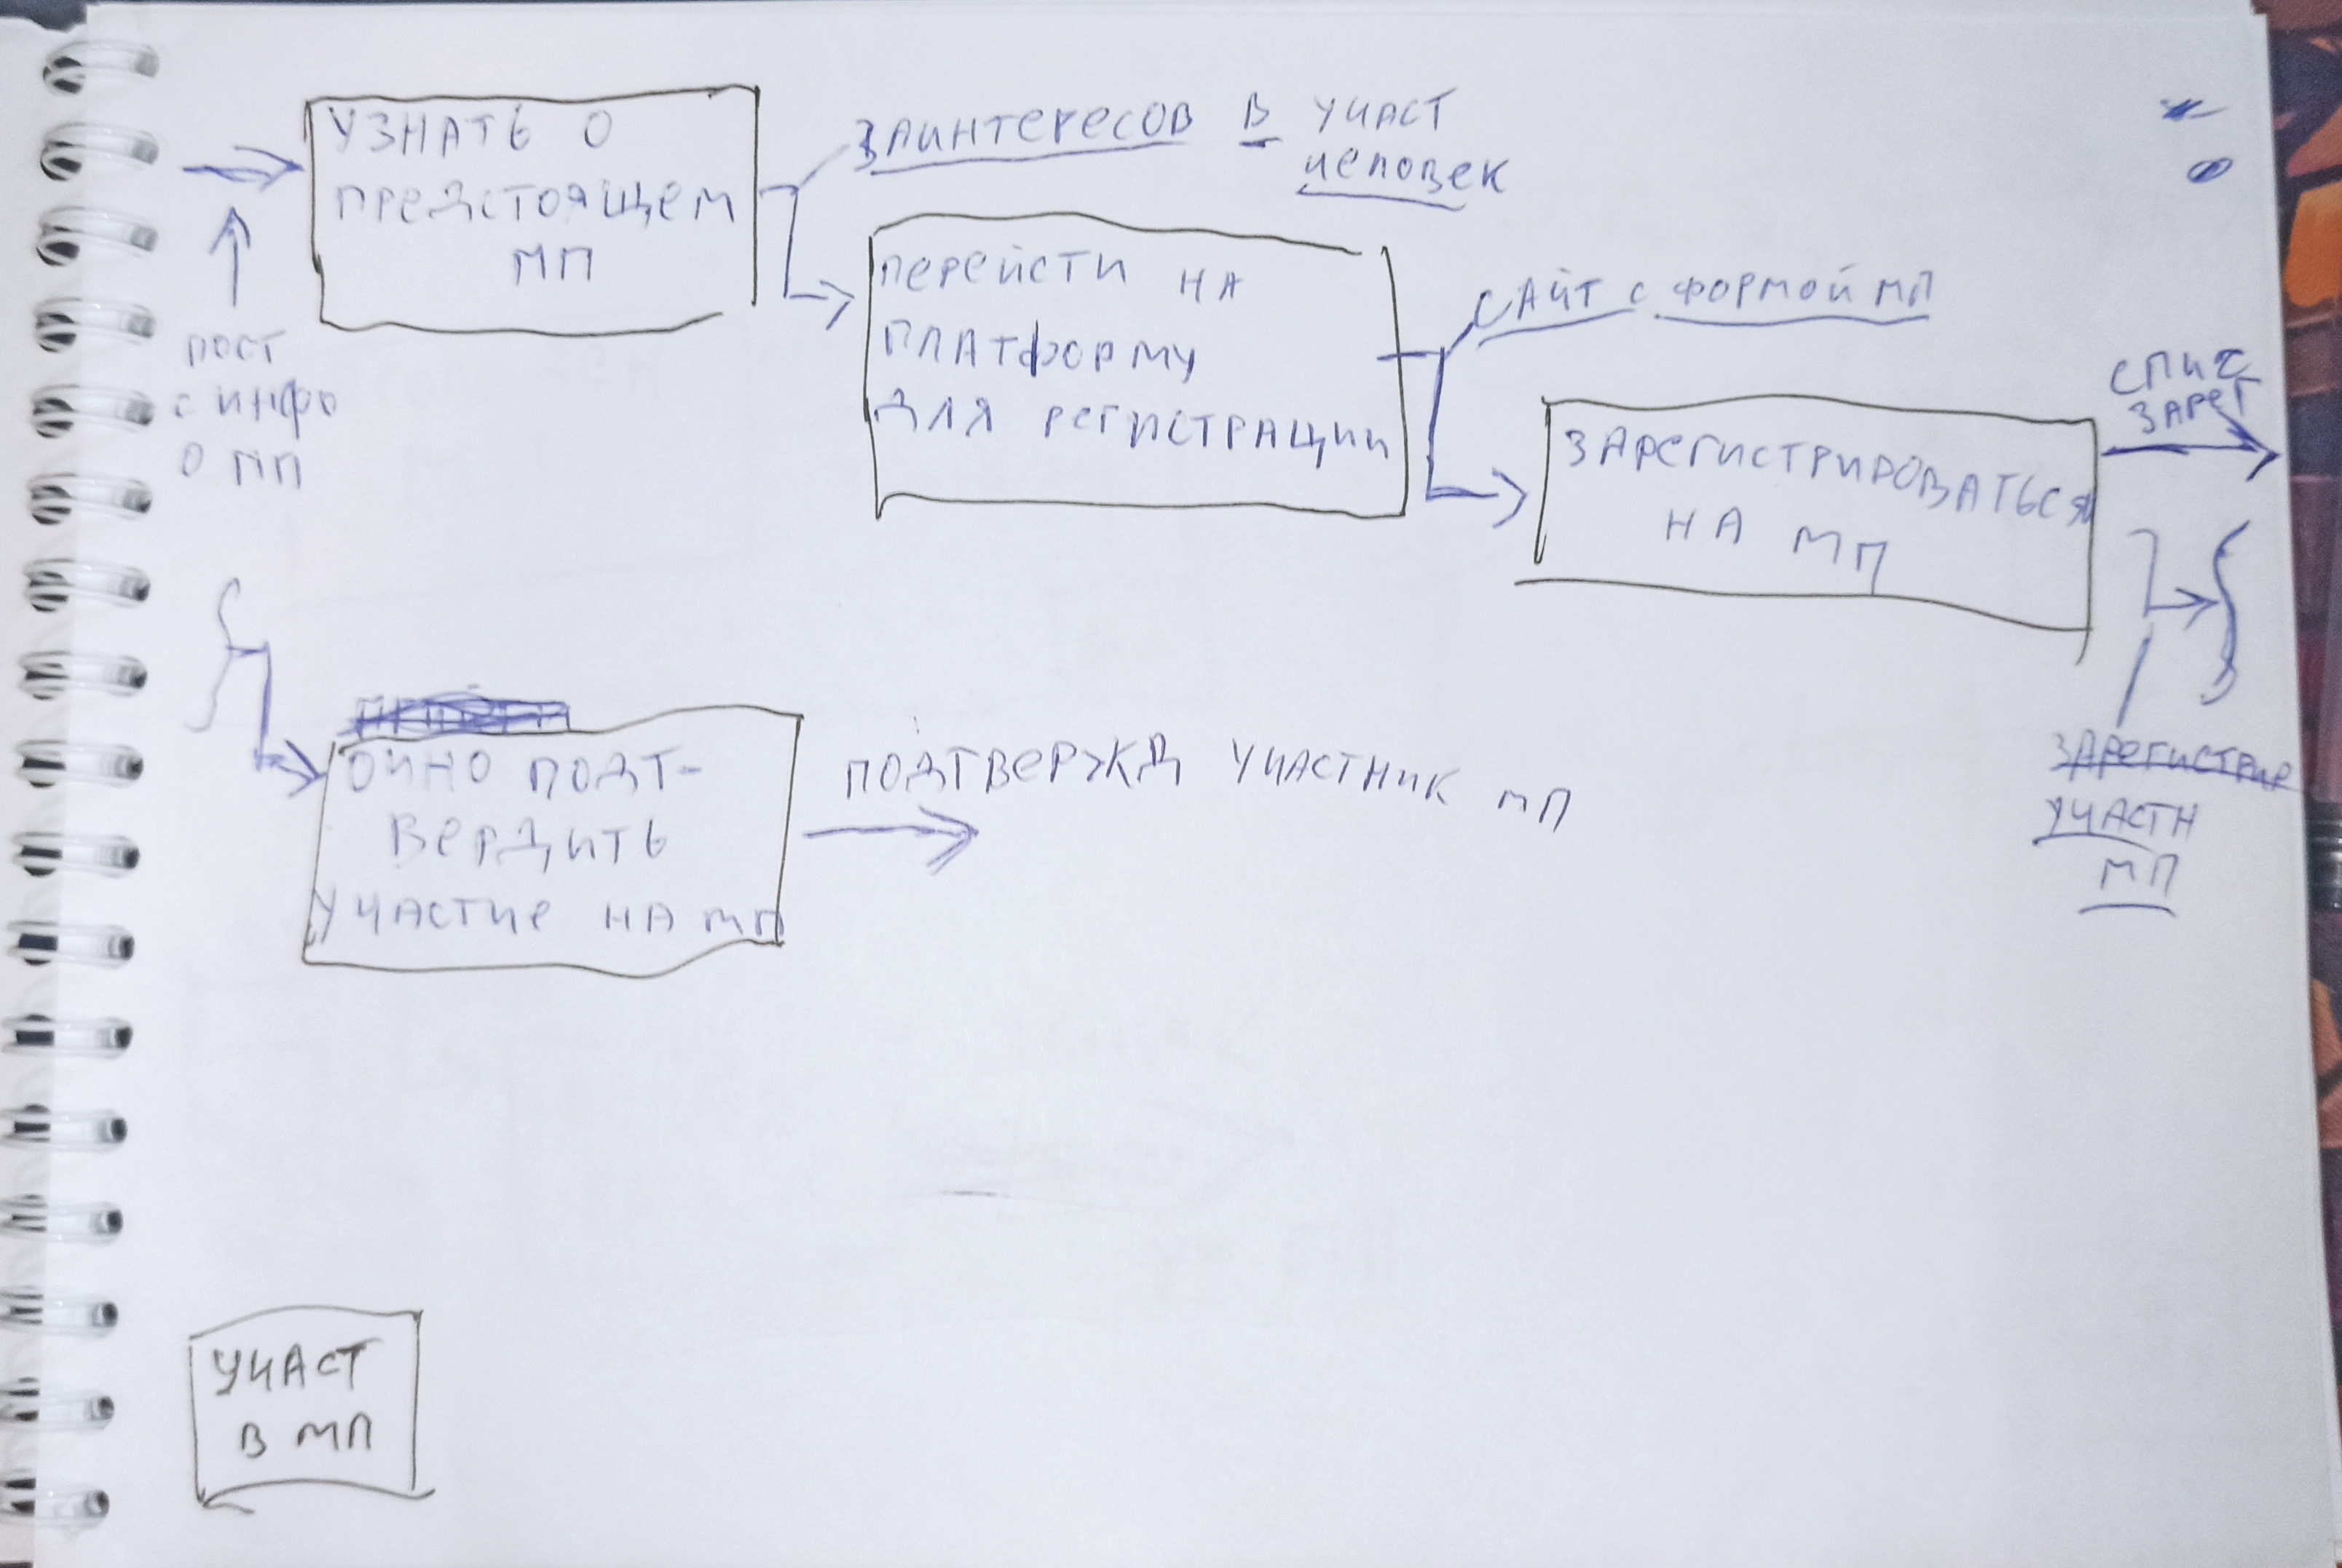 УЗНАТЬ О
ПРЕДСТОЯЩЕМ
МП
ЗАИНТЕРЕСОВ В УЧАСТ
ЧЕЛОВЕК
ПОСТ
С ИНФО
О МП
ПЕРЕЙСТИ НА
ПЛАТФОРМУ
ДЛЯ РЕГИСТРАЦИИ
САЙТ С ФОРМОЙ МП
ЗАРЕГИСТРИРОВАТЬСЯ
НА МП
СПИС
ЗАРЕГ
ЗАРЕГИСТРИР
УЧАСТН
МП
ОЧНО ПОДТ-
ВЕРДИТЬ
УЧАСТИЕ НА МП
ПОДТВЕРЖД УЧАСТНИК МП
УЧАСТ
В МП